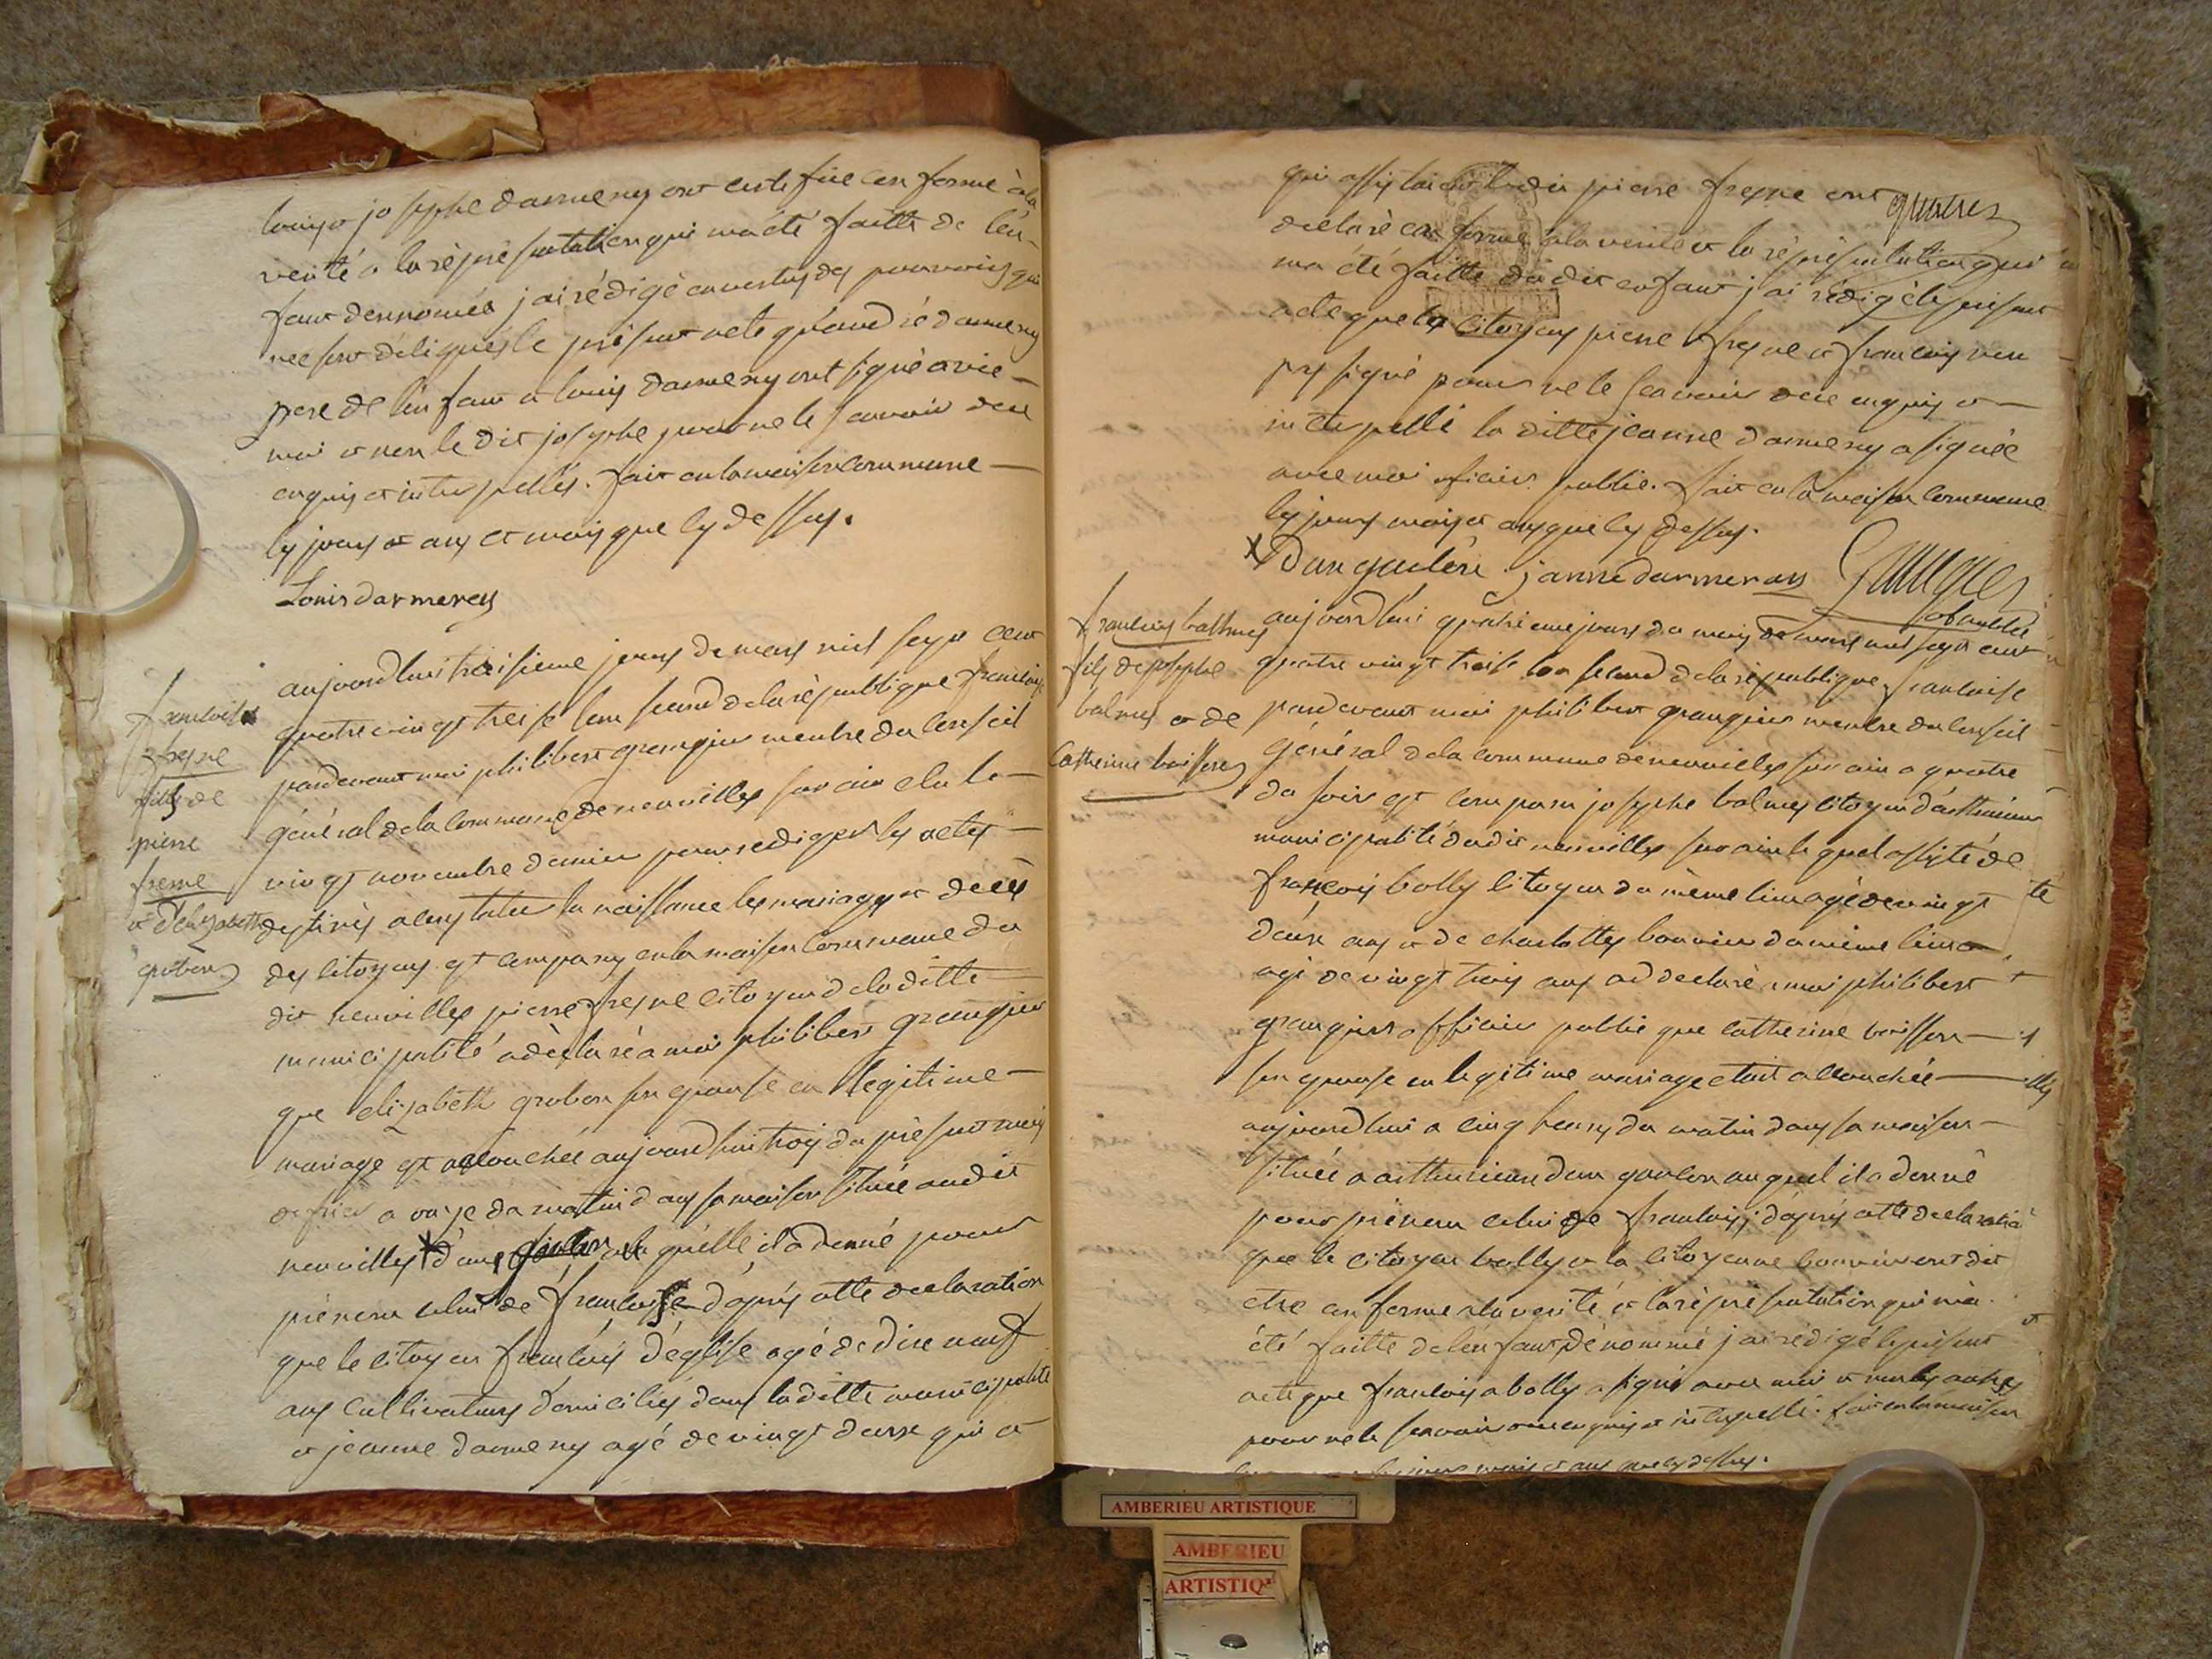 louis et josephe darmeny ont certifiée conforme à la
verité a la réprésentation qui m'a été faitte de l'en-
fant dennomés j'ai rédigé en vertus des pouvoirs qui
me sont délégués le présent acte
pere de l'enfant et louis darmeny ont signé avec
moi et non le dit josephe pour ne le scavoir de ce
enquis et interpellés. fait en la maison commune
les jours et ans et mois que cy dessus.
Louis darmerey
aujourdhui troisieme jours de mars mil sept cent
quatre vingt treise l'an second de la république francoise
pardevant moi philibert grangier membre du conseil
général de la commune de neuvilles sur ain elu le
vingt novembre dernier pour rediger les actes
destinés a constater la naissance les mariages et décès
des citoyens est comparu en la maison commune du
dit neuvilles pierre freyne citoyen de la ditte
municipalité a déclaré a moi philibert grangier
que elizabeth grobon son epouse en legitime
mariage est accouchée aujourdhui trois du présent mois
a onze du matin dans sa maison située audit
neuvilles d'une a la quelle il a donné pour
prénom celui de francoise d'après cette declaration
que le citoyen francois d'église agé de dix neuf
ans cultivateurs domiciliés dans la ditte municipalité
et jeanne darmeny agé de vingt deux qui et
francoise
freyne
fille de
pierre
freyne
et d'elizabeth
grobon
qui assistaient le dit pierre freyne ont
déclaré conforme à la verité et la réprésentation qui
m'a été faitte du dit enfant j'ai rédigé le présent
acte que les citoyens pierre freyne et francois n'en
pas signé pour ne le scavoir de ce enquis et
interpellé la ditte jeanne darmeny a signée
avec moi oficier public. fait en la maison commune
les jours mois et ans que cy dessus.
janne darmeray
of public
francois balmes
fils de josephe
balmes et de
Catherine boisson
aujourdhui quatrieme jours du mois de mars mil sept cent
quatre vingt treise l'an second de la république francoise
pardevant moi philibert grangier membre du conseil
général de la commune de neuvilles sur ain a quatre
du soir est comparu josephe balmes citoyen
municipalité dudit neuvilles sur ain le quel assisté de
francois bolly citoyen du même lieu agé de vingt
deux ans et de charlotte bouvier du même lieu
agé de vingt trois ans a declaré a moi philibert
grangier officier public que catherine boisson
son epouse en legitime mariage etait accouchée
aujourdhui a cinq heures du matin dans sa maison
située a d'un garcon au quel il a donné
pour prénom celui de francois d'après cette declaration
que le citoyen bolly et la citoyenne bouvier ont dit
etre conforme a la verité et la réprésentation qui m'a
été faitte de l'enfant dénommé j'ai rédigé le présent
acte que francois bolly a signé avec moi et non les autres
pour ne le scavoir de ce enquis et interpellé. fait en la maison
jours mois et ans que cy dessus.
AMBERIEU ARTISTIQUE
AMBERIEU
ARTISTIQ